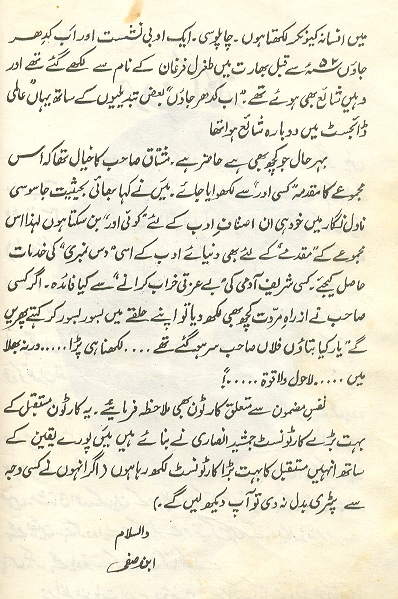 میں افسانہ کیونکر لکھتا ہوں۔ چاپلوسی۔ ایک ادبی نشست اور اب کدھر
جاؤں ۵۲ء سے قبل بھارت میں طغرل فرغان کے نام سے لکھے گئے تھے اور
وہیں شائع بھی ہوئے تھے۔ "اب کدھر جاؤں" بعض تبدیلیوں کے ساتھ یہاں "عالمی
ڈائجسٹ میں دوبارہ شائع ہوا تھا
بہر حال جو کچھ بھی ہے حاضر ہے۔ مشتاق صاحب کا خیال تھا کہ اس
مجموعے کا مقدمہ "کسی اور" سے لکھوایا جائے۔ میں نے کہا بھائی بحیثیت جاسوسی
ناول نگار میں خود ہی ان اصناف ادب کے لئے "کوئی اور" بن سکتا ہوں لہٰذا اس
مجموعے کے "مقدمے" کے لئے بھی دنیائے ادب کے اسی "دس نمبری" کی خدمات
حاصل کیجئے۔ کسی شریف آدمی کی "بے عزتی خراب کرانے" سے کیا فائدہ۔ اگر کسی
صاحب نے از راہ مروت کچھ بھی لکھ دیا تو اپنے حلقے میں بسور بسور کر کہتے پھریں
گے "یار کیا بتاؤں فلاں صاحب سر ہو گئے تھے .... لکھنا ہی پڑا ..... ورنہ بھلا
میں ..... لاحول ولا قوۃ .....!"
نفس مضمون سے متعلق کارٹون بھی ملاحظہ فرمائیے۔ یہ کارٹون مستقبل کے
بہت بڑے کارٹونسٹ جمشید انصاری نے بنائے ہیں میں پورے یقین کے
ساتھ انہیں مستقبل کا بہت بڑا کارٹونسٹ لکھ رہا ہوں (اگر انہوں نے کسی وجہ
سے پٹری بدل نہ دی تو آپ دیکھ لیں گے۔)
والسلام
ابن صفی